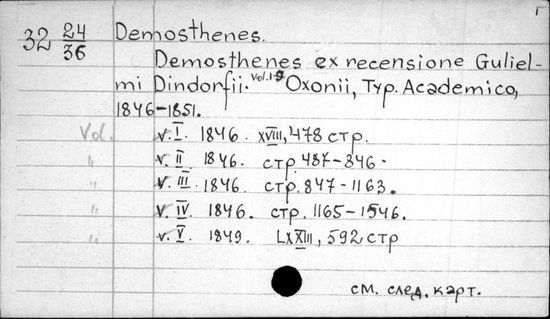 32 24/36 Demosthenes.
Demosthenes ex recensione Guliel-
mi Dindorfii. Vol. 1-9 Oxonii, Typ. Academico,
1846-1851.
Vol. v. I. 1846. XVIII, 478 стр.
" v. II. 1846. стр. 487-846.
" v. III. 1846. стр. 847-1163.
" v. IV. 1846. стр. 1165-1546.
" v. V. 1849. LXXIII, 592 стр
см. след. карт.